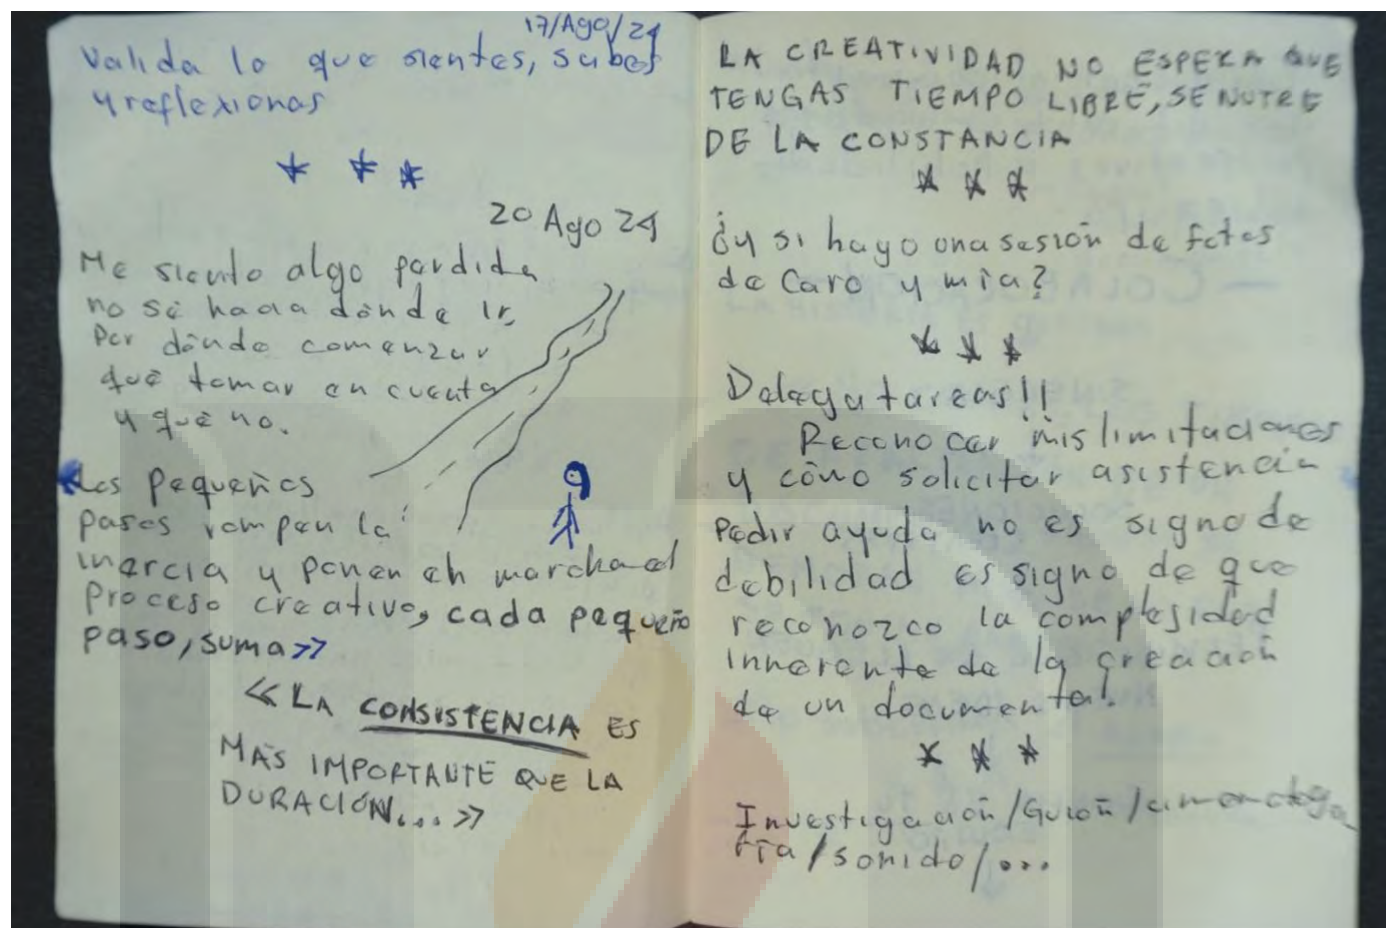 17/Ago/24
Valida lo que sientes, sabes
y reflexionas
20 Ago 24
Me siento algo perdida
no sé hacia dónde ir,
Por dónde comenzar
qué tomar en cuenta
y qué no.
Los pequeños
pasos rompen la
inercia y ponen en marcha el
proceso creativo, cada pequeño
paso, suma>>
<<LA CONSISTENCIA ES
MÁS IMPORTANTE QUE LA
DURACIÓN...>>
LA CREATIVIDAD NO ESPERA QUE
TENGAS TIEMPO LIBRE, SE NUTRE
DE LA CONSTANCIA
* * *
¿y si hago una sesión de fotos
de Caro y mía?
* * *
Delega tareas!!
Reconocer mis limitaciones
y cómo solicitar asistencia
Pedir ayuda no es signo de
debilidad es signo de que
reconozco la complejidad
inherente de la creación
de un documental.
* * *
Investigación/Guión/cinematogra
fía/sonido/...